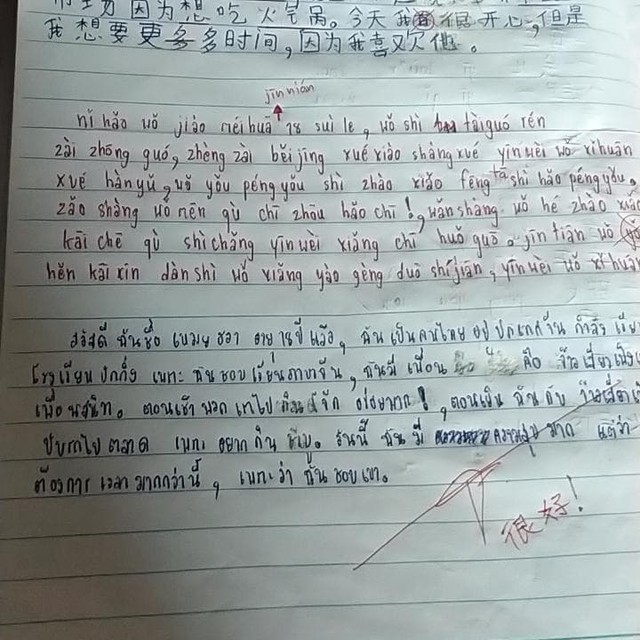 因为想吃火锅。今天我很开心,但是
我想要更多多时间,因为我喜欢他。
jīn nián
nǐ hǎo wǒ jiào méi huā 18 suì le, wǒ shì tài guó rén
zài zhōng guó, zhèng zài běi jīng xué xiào shàng xué yīn wèi wǒ xǐ huān
xué hàn yǔ, wǒ yǒu péng yǒu shì zhào xiǎo fēng tā shì hǎo péng yǒu.
zǎo shàng wǒ mēn qù chī zhōu hǎo chī!, wǎn shàng wǒ hé zhào xiǎo
kāi chē qù shì chǎng yīn wèi xiǎng chī huǒ guō. jīn tiān wǒ
hěn kāi xīn dàn shì wǒ xiǎng yào gèng duō shí jiān, yīn wèi wǒ xǐ huān
สวัสดี ฉันชื่อ เหมยฮวา อายุ 18 ปีแล้ว, ฉันเป็นคนไทย อยู่ กำลัง เรีย
โรงเรียน ปักกิ่ง เพราะ ฉันชอบเรียนภาษาจีน, ฉันมี เพื่อน คือ จ้าวเสี่ยวเฟิง
เพื่อนสนิท. ตอนเช้า พวกเราไป กิน อร่อยมาก!, ตอนเย็น ฉันกับ
ขับรถไป ตลาด เพราะ อยากกิน ชาบู. วันนี้ ฉัน มี ความสุข มาก แต่ว่า
ต้องการ เวลา มากกว่านี้, เพราะว่า ฉันชอบเขา.
很好!